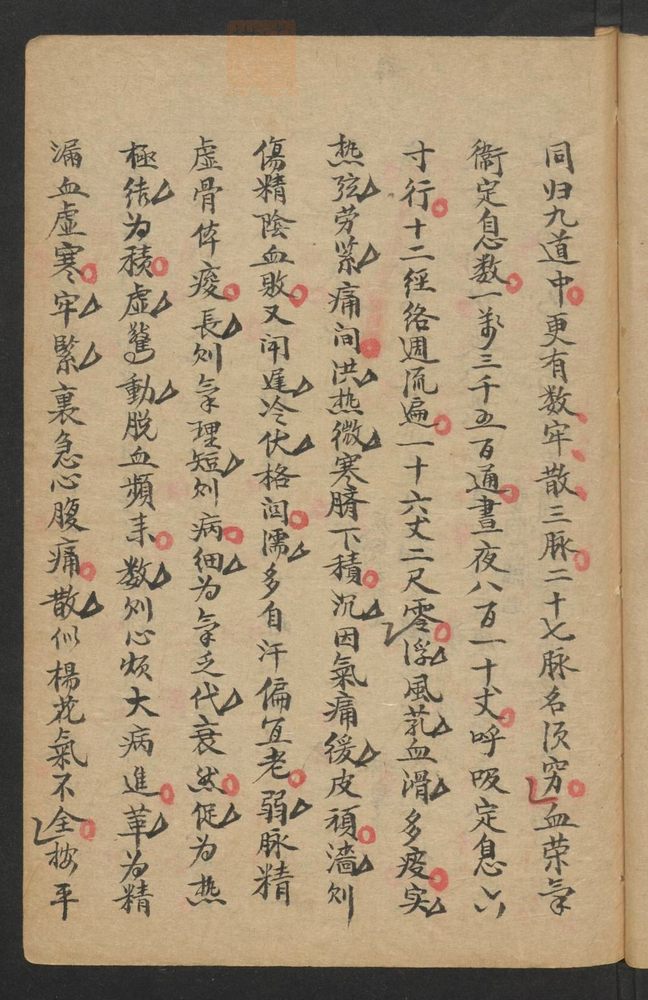 同归九道中更有数牢散三脉二十七脉名须穷血荣氣
衛定息数一萬三千五百通晝夜八百一十丈呼吸定息六
寸行十二經絡週流遍一十六丈二尺零浮風芤血滑多痰实
热弦劳紧痛间洪热微寒臍下積沉因氣痛緩皮頑濇则
傷精陰血敗又闻遲冷伏格闾濡多自汗偏宜老弱脉精
虚骨体痠長则氣理短则病細为氣乏代衰然促为热
極结为積虚驚動脱血頻来数则心烦大病進革为精
漏血虚寒牢緊裏急心腹痛散似楊花氣不全按平